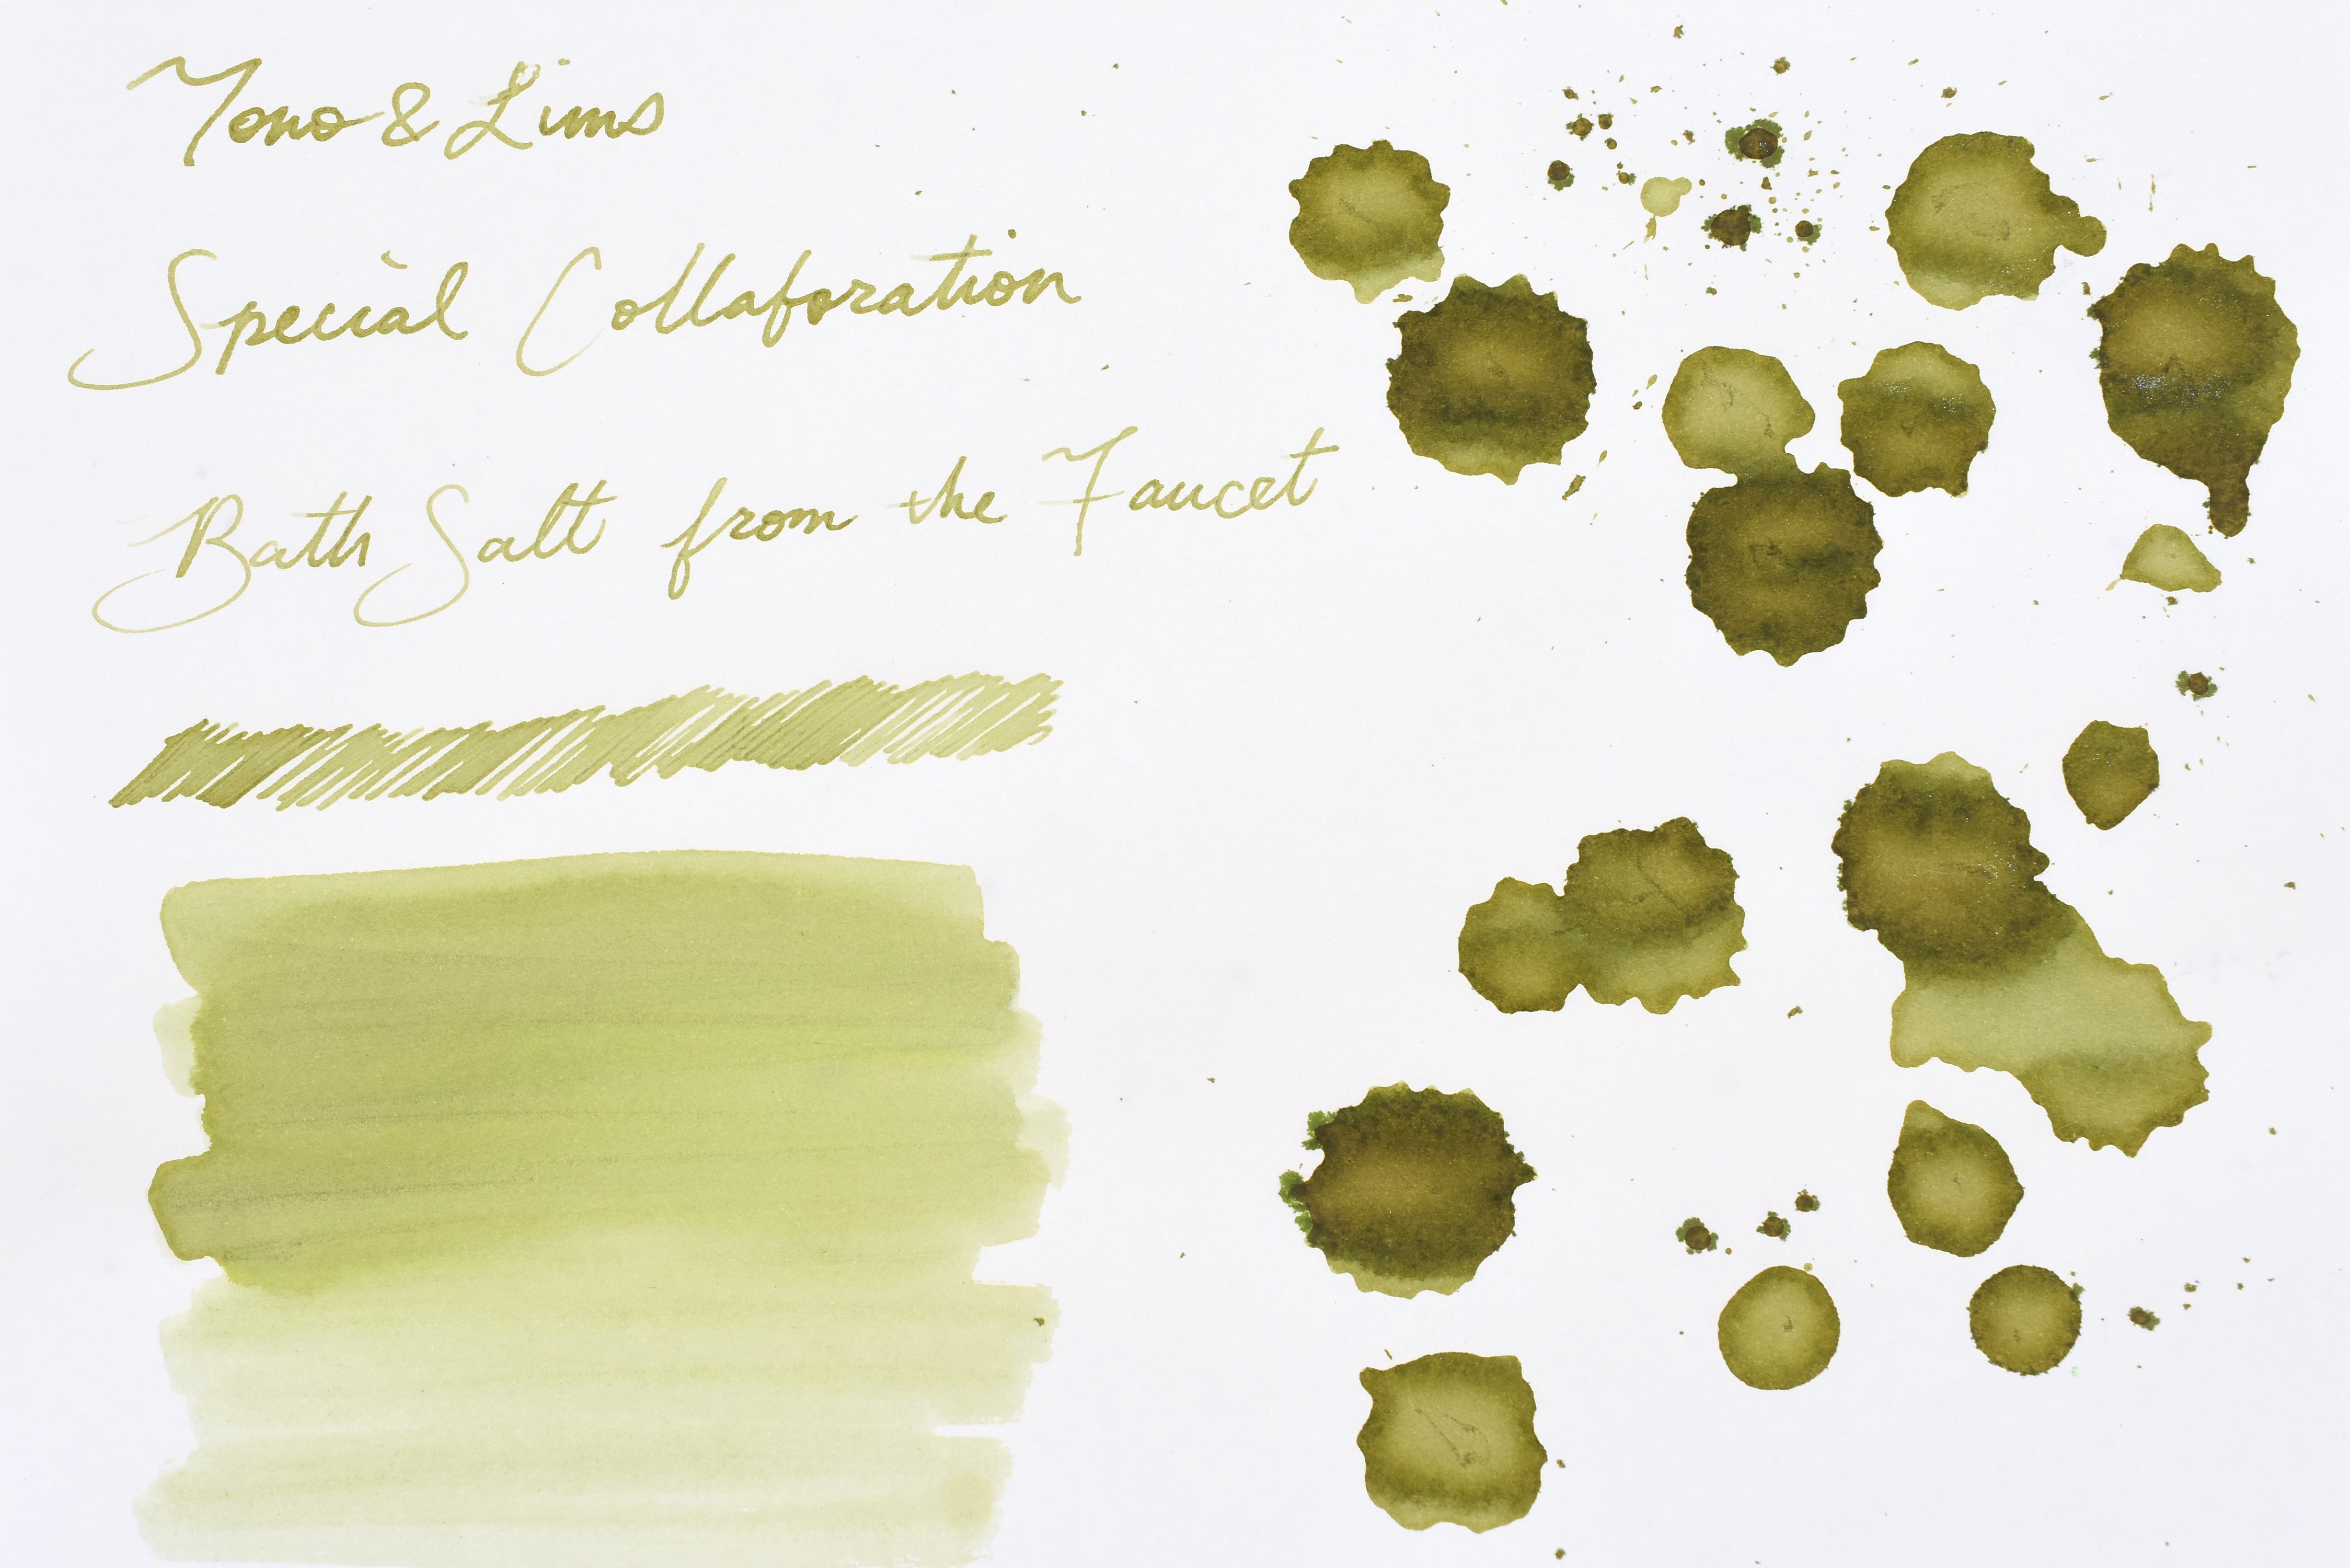 Tono & Lims
Special Collaboration
Bath Salt from the Faucet